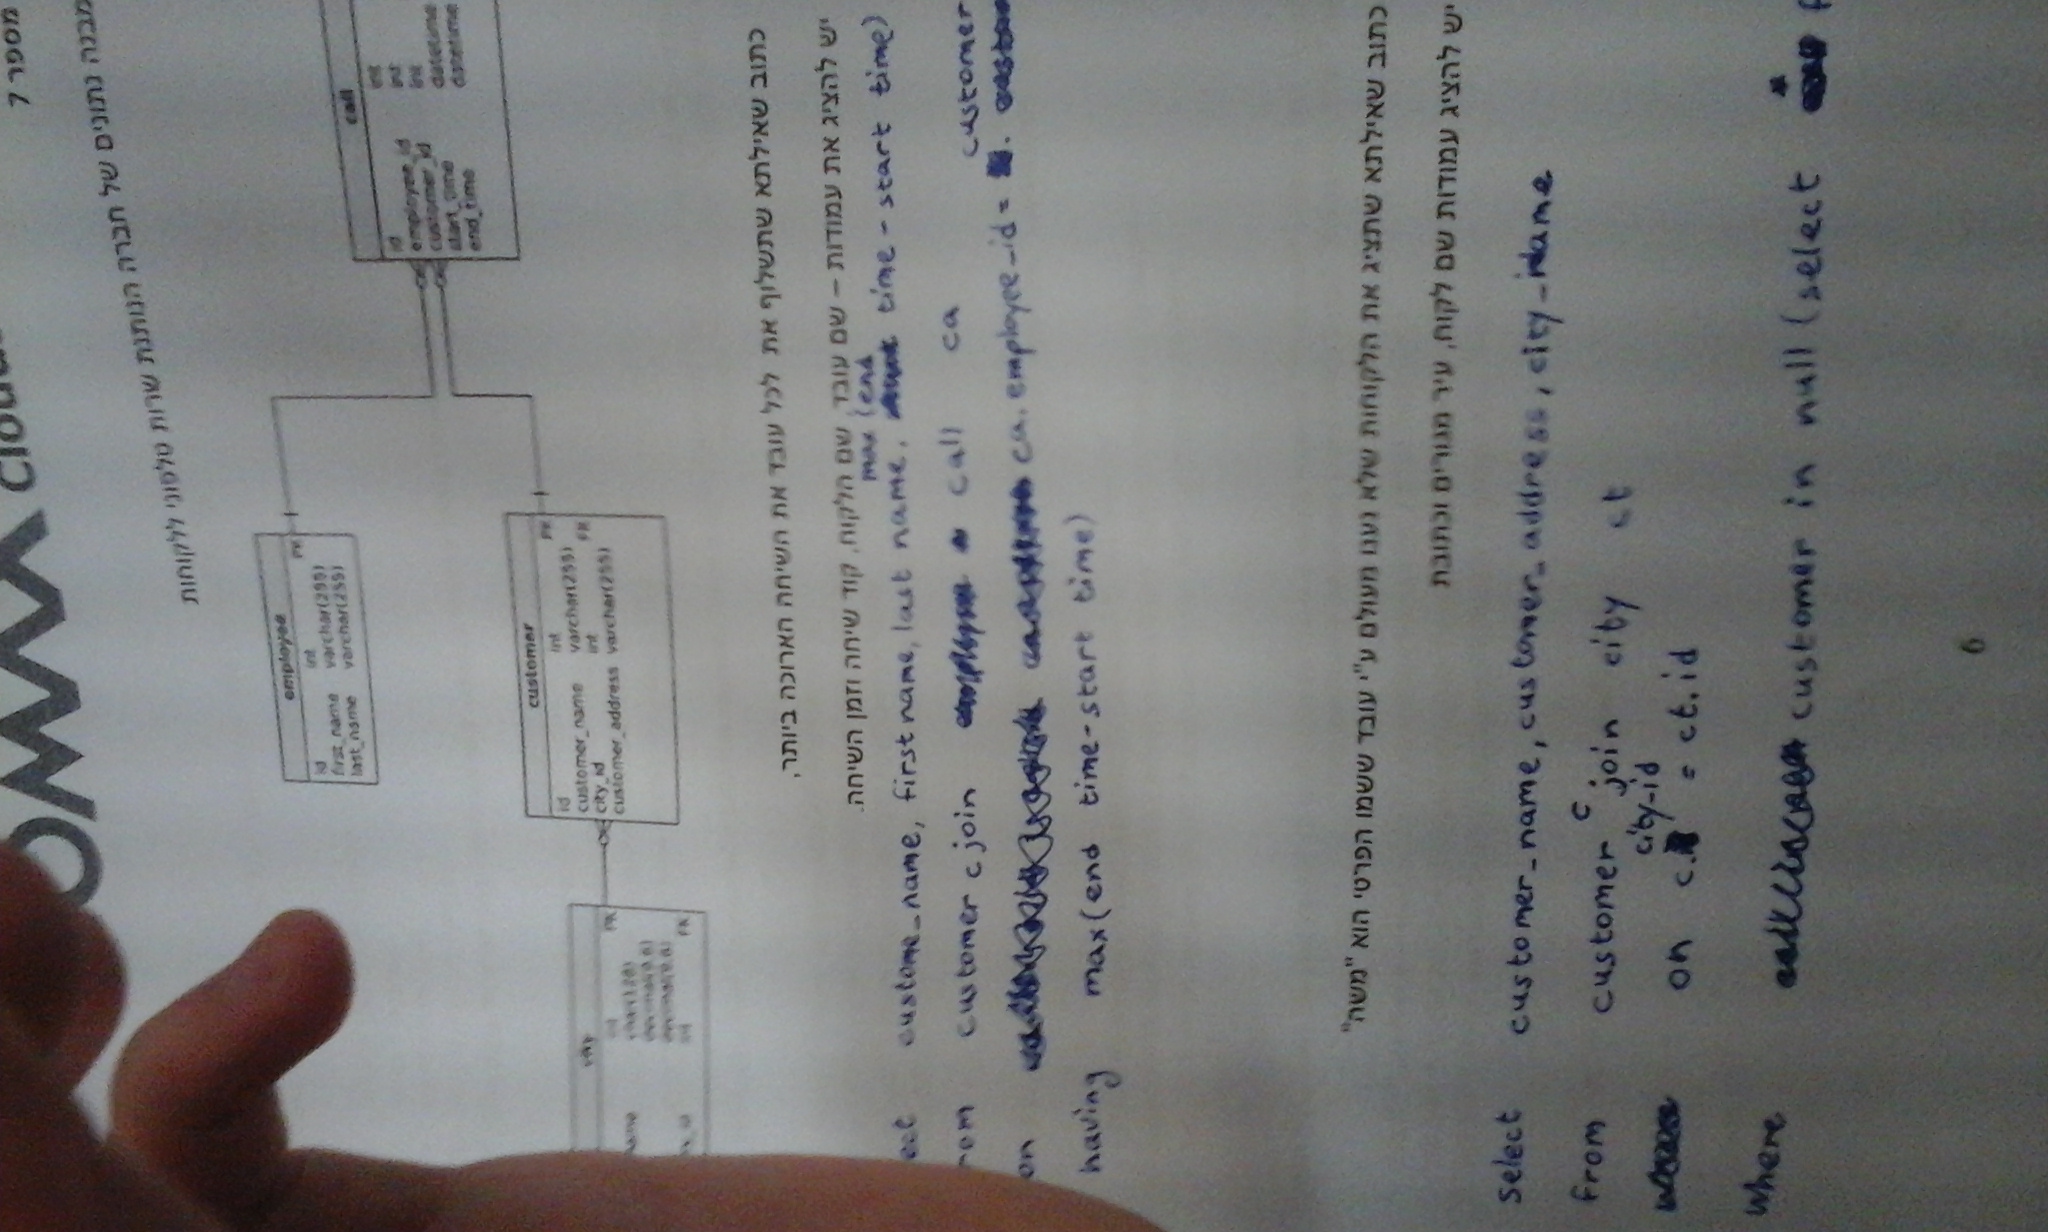 OMAX Cloud
מספר 7
מבנה נתונים של חברה הנותנת שרות טלפוני ללקוחות
employee
id int PK
first_name varchar(255)
last_name varchar(255)
call
id int
employee_id int
customer_id int
start_time datetime
end_time datetime
customer
id int PK
customer_name varchar(255)
city_id int FK
customer_address varchar(255)
city
int PK
name char(128)
decimal(9,6)
decimal(9,6)
int FK
כתוב שאילתא שתשלוף את לכל עובד את השיחה הארוכה ביותר,
יש להציג את עמודות – שם עובד, שם הלקוח, קוד שיחה וזמן השיחה.
ect custome_name, first name, last name, max (end time - start time)
rom customer c join call ca
on ca. employee_id = . customer
having max(end time-start time)
כתוב שאילתא שתציג את הלקוחות שלא נענו מעולם ע"י עובד ששמו הפרטי הוא "משה"
יש להציג עמודות שם לקוח, עיר מגורים וכתובת
select customer_name, customer_address, city_name
from customer c join city ct
on c.city_id = ct.id
where customer in null (select *
6